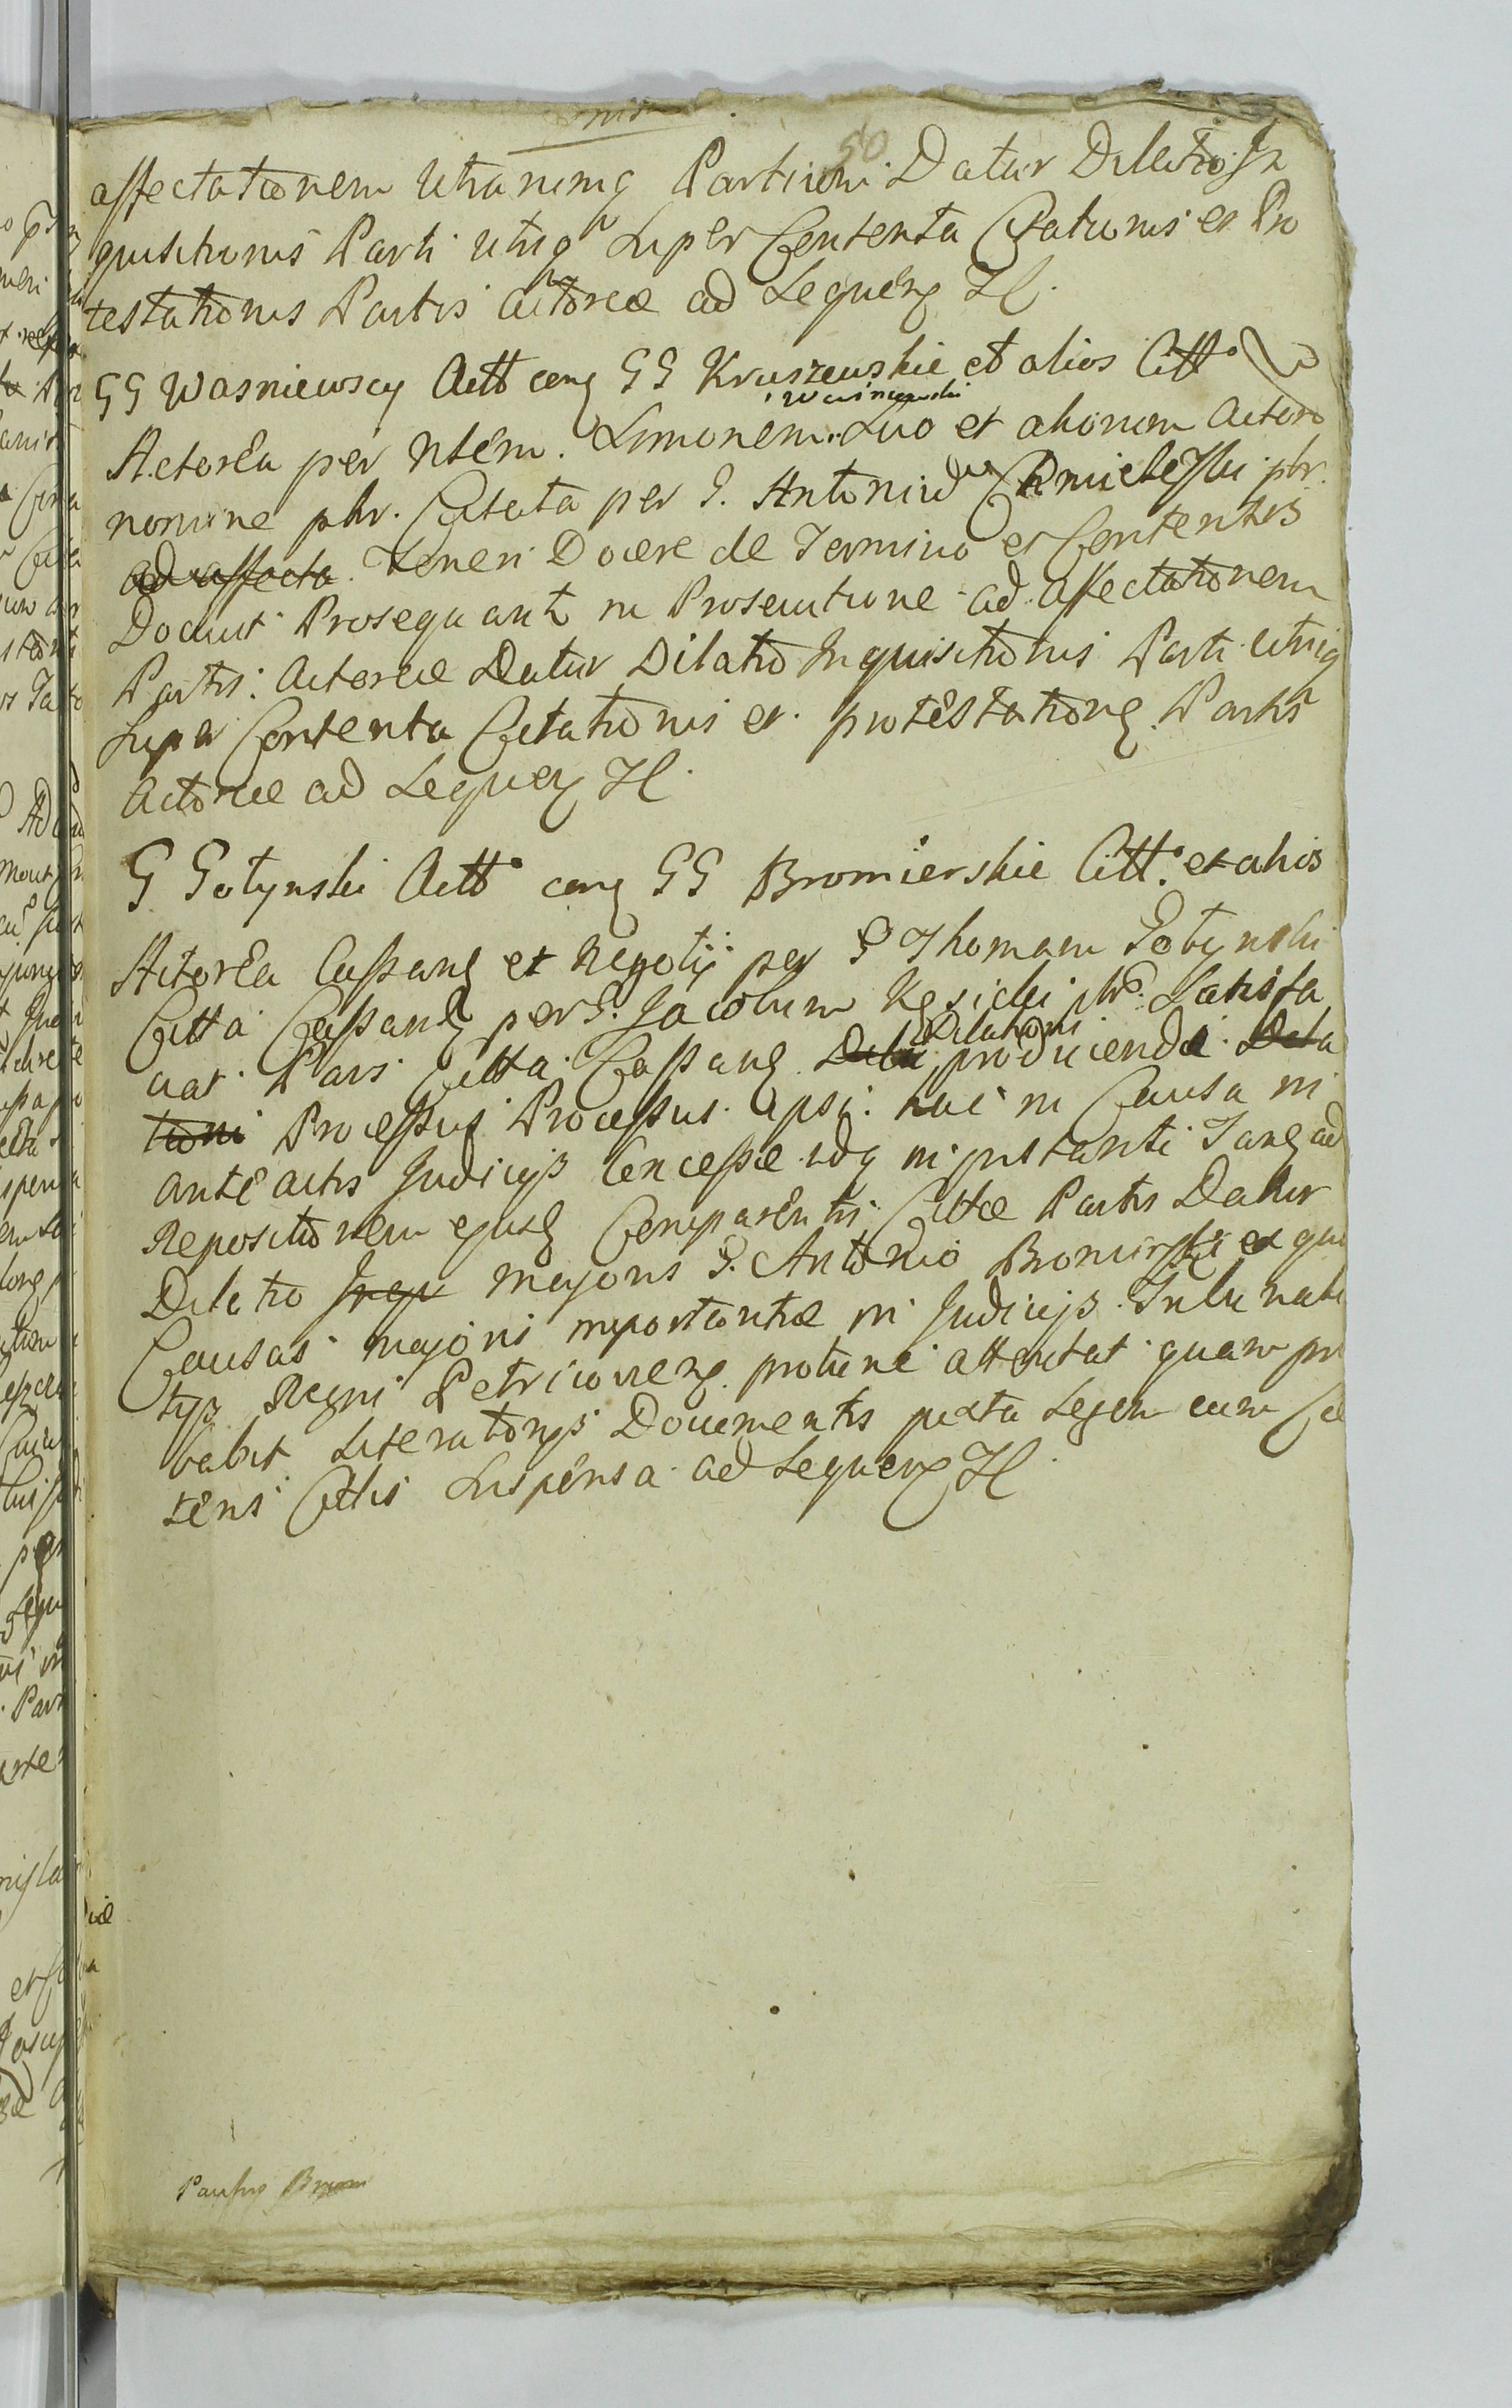 50
affectationem Utrarumq Partium Datur Dilatio In
quisitionis Parti Utriq Super Contenta Citationis et Pro
testationis Partis Actoreæ ad Sequeng
GG Wasniewscy Actt cong GG Kruszewskie et alios Citt
Actorea per Nbem. Simonem Wasniewski Suo et aliorum Actoreo
nomine pbr. Citata per G. Antonium Chmieleski pbr.
ad affecta. Teneri Docere de Termino et Contentis
Docuit Prosequant in Prosecutione ad affectationem
Partis Actoreæ Datur Dilatio Inquisitionis Parti Utriq
Super Contenta Citationis et protestationg Partis
Actoreæ ad Sequeng
G Gotynski Actt cong GG Bromierskie Citt. et alios
Actorea Cassang et Negotij per G Thomam Gotynski
Citta Cassang per G. Jacobum Kęsicki pbr. Satisfa
ciat Pars Citta Cassang Dila Dilationi producenda Dila
tioni Processus Processus ipsi hac in Causa in
anteactis Judicijs Concessæ idq in instanti Tang ad
Repositionem ejusq Comparenti Cittæ Partis Datur
Dilatio Inqu majoris G. Antonio Bromirski et qui
Causas majoris importantiæ in Judicijs Tribunali
tijs Regni Petricoviens protunc attentat quam pro
babit Literatorijs Documentis juxta Legem cum Cæ
teris Citis Suspensa ad Sequeng